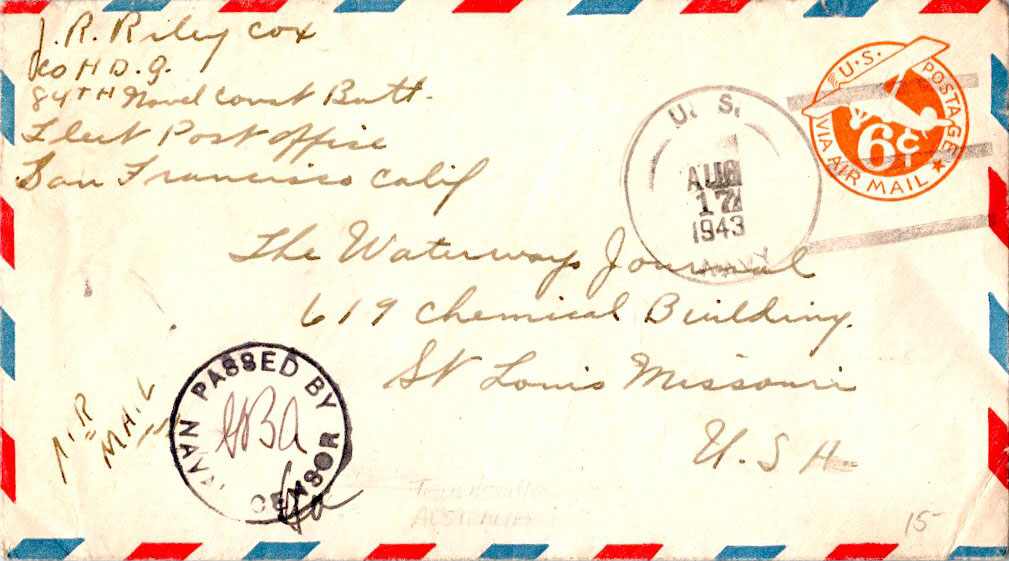 J. R. Riley Cox
Co H D. 9.
84TH Naval Const Batt.
Fleet Post office
San Francisco Calif
U. S.
AUG
17
1943
NAVY
U.S. POSTAGE
6¢
VIA AIR MAIL
The Waterways Journal
619 Chemical Building.
St Louis Missouri
U. S A.
AIR
MAIL
PASSED BY
NAVY CENSOR
Townsville
AUSTRALIA
15-